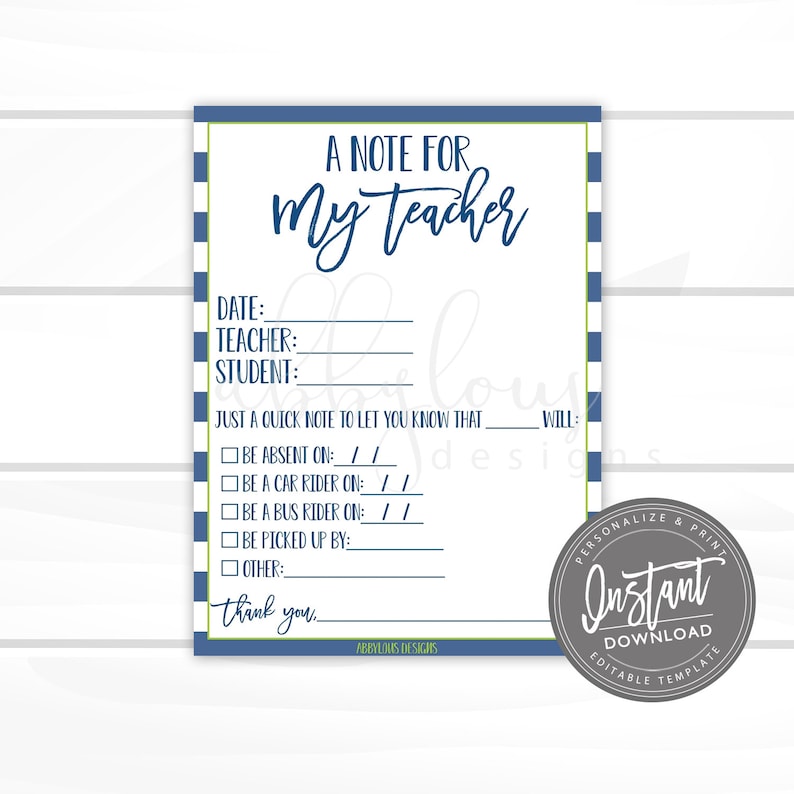 A NOTE FOR
My Teacher
DATE:
TEACHER:
STUDENT:
abbylous
designs
JUST A QUICK NOTE TO LET YOU KNOW THAT ______ WILL:
☐ BE ABSENT ON: __/__/__
☐ BE A CAR RIDER ON: __/__/__
☐ BE A BUS RIDER ON: __/__/__
☐ BE PICKED UP BY:
☐ OTHER:
Thank you,
ABBYLOUS DESIGNS
PERSONALIZE & PRINT
Instant
DOWNLOAD
EDITABLE TEMPLATE